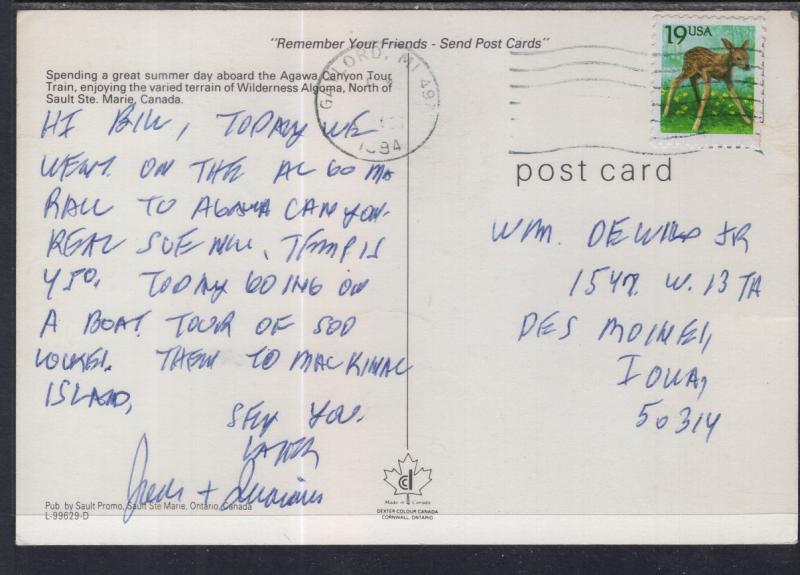 "Remember Your Friends - Send Post Cards"
19 USA
GAYLORD, MI 497
1994
Spending a great summer day aboard the Agawa Canyon Tour
Train, enjoying the varied terrain of Wilderness Algoma, North of
Sault Ste. Marie, Canada.
HI BILL, TODAY WE
WENT ON THE ALGOMA
RAIL TO AGAWA CANYON.
REAL SCENIC. TEMP IS
45°. TODAY GOING ON
A BOAT TOUR OF SOO
LOCKS. THEN TO MACKINAC
ISLAND,
SEE YOU
LATER
+
post card
WM. DEWILD JR
1547 W. 13 TH
DES MOINES,
IOWA,
50314
Pub. by Sault Promo, Sault Ste Marie, Ontario, Canada
L-99629-D
Made in Canada
DEXTER COLOUR CANADA
CORNWALL, ONTARIO